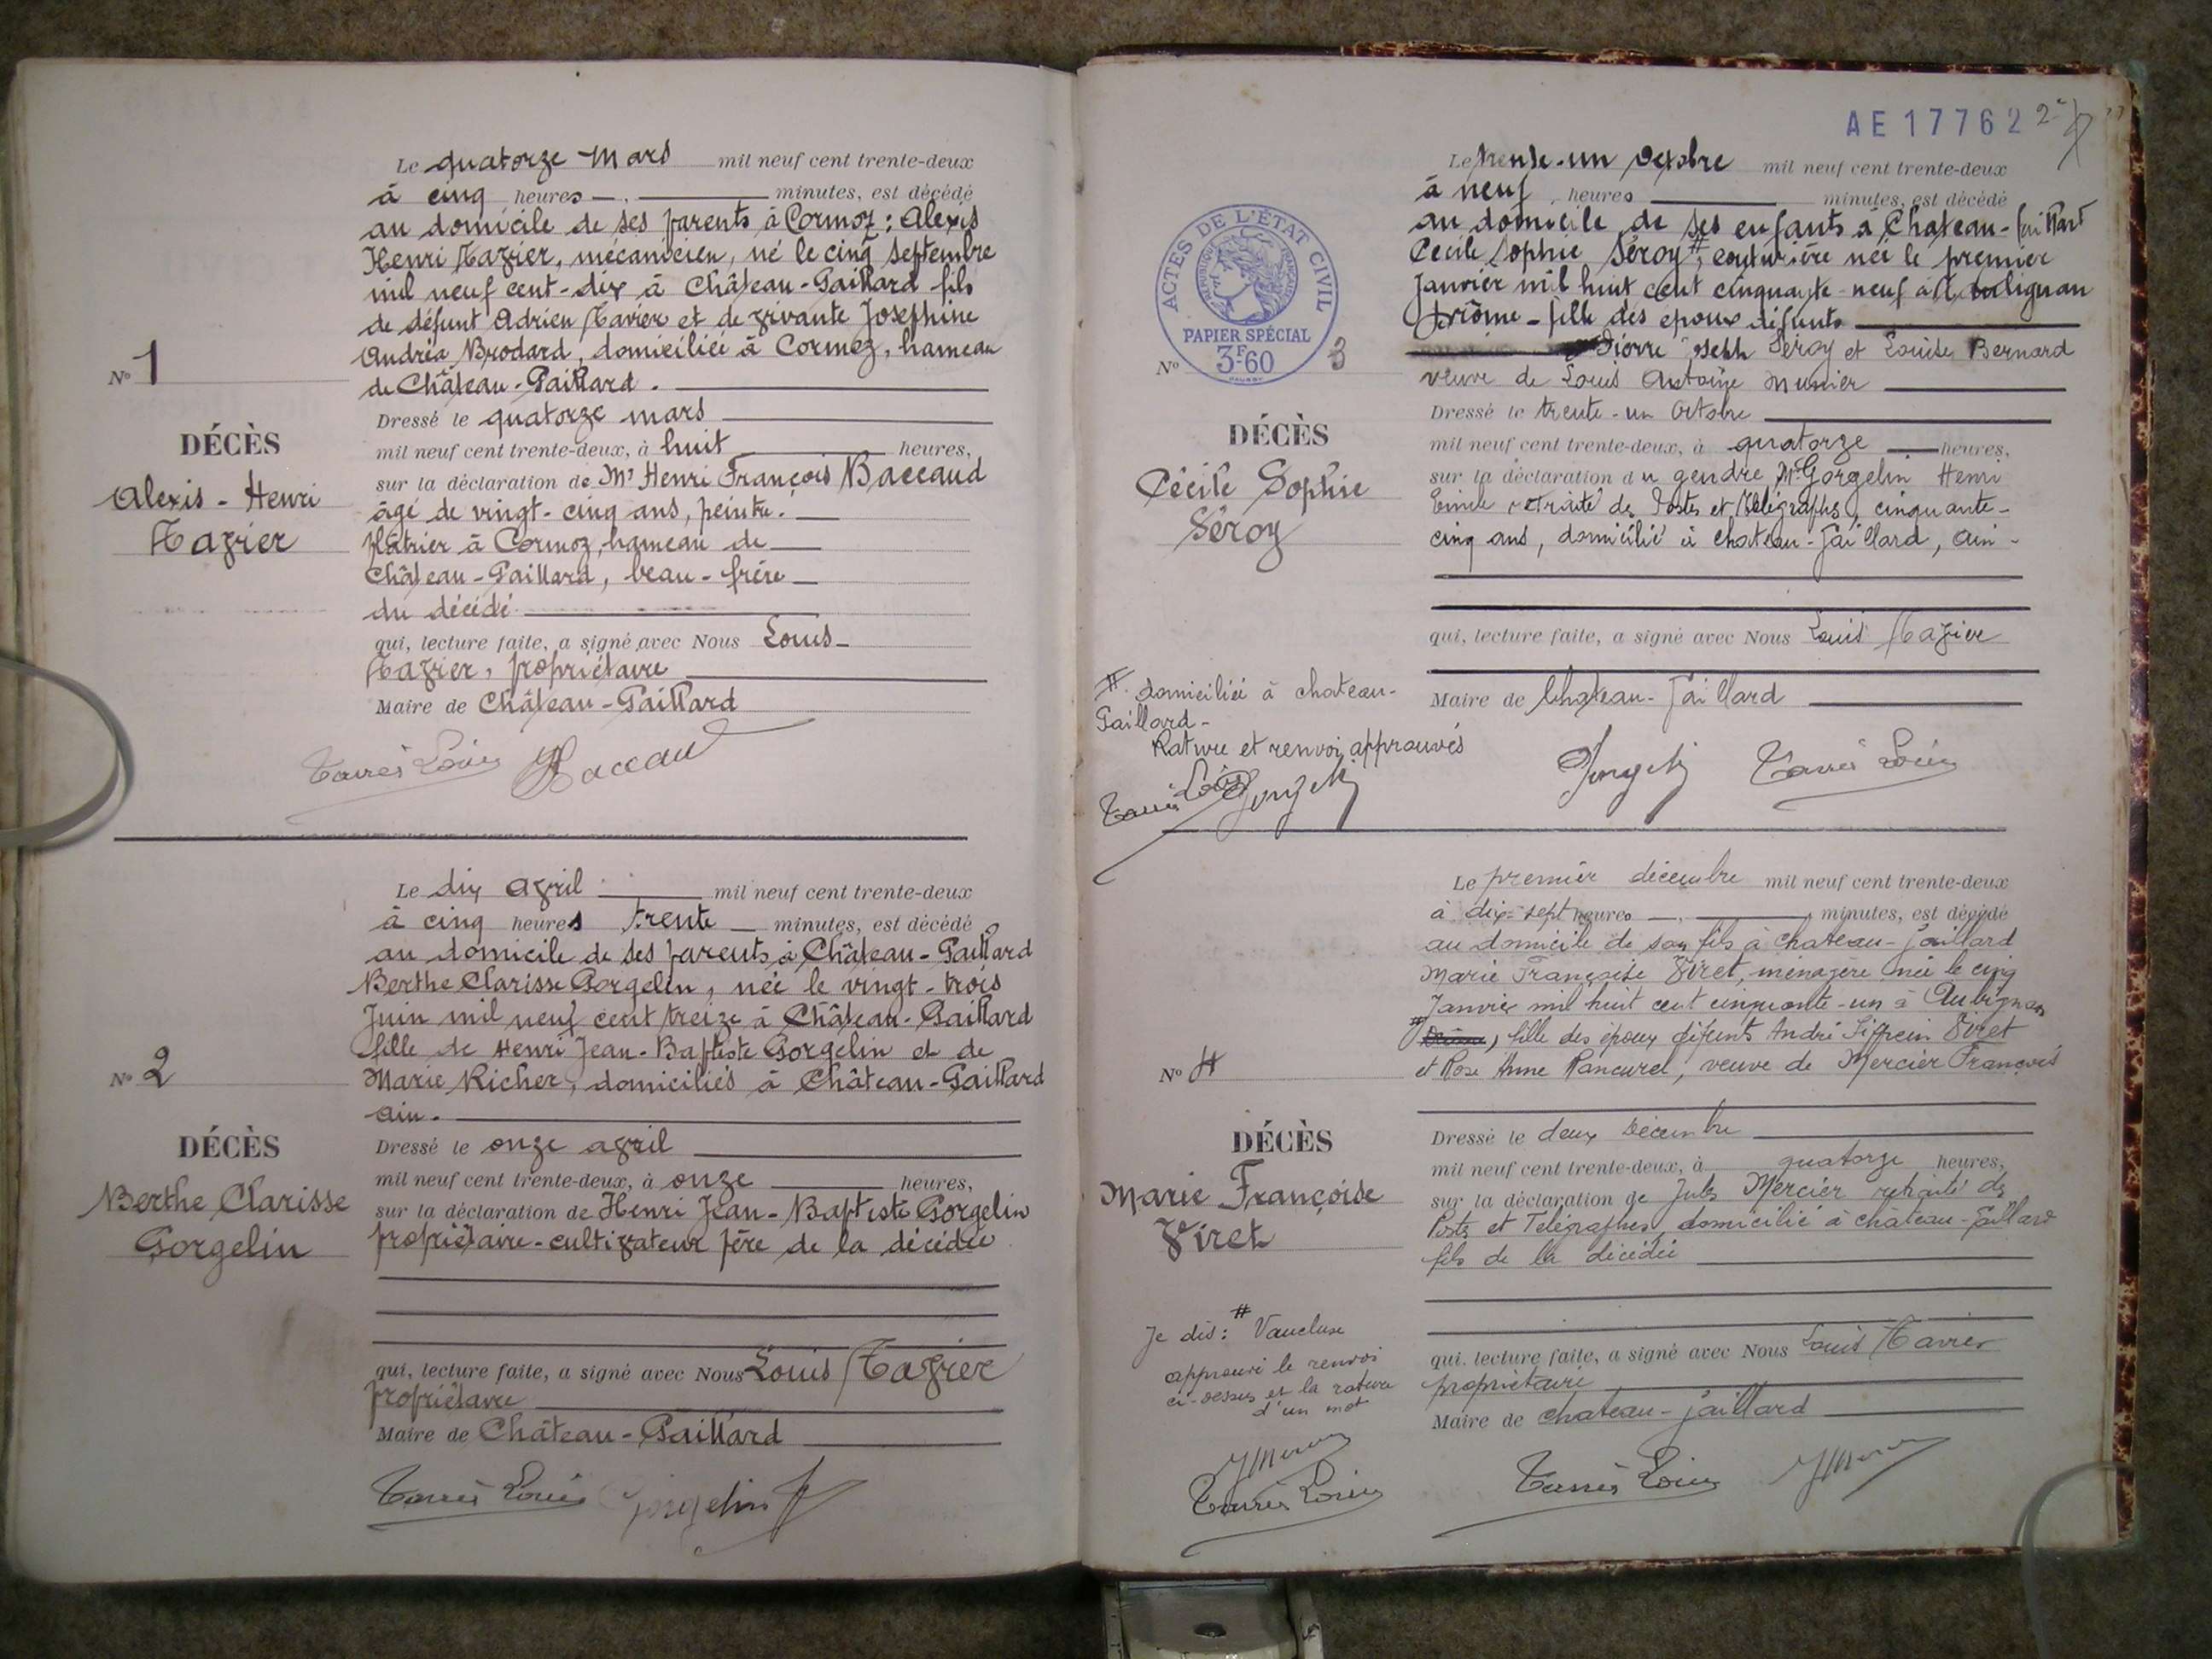 Le quatorze Mars mil neuf cent trente-deux
à cinq heures minutes, est décédé
au domicile de ses parents à Cormoz : Alexis
Henri Tavier, mécanicien, né le cinq septembre
mil neuf cent-dix à Château-Gaillard fils
de défunt Adrien Tavier et de vivante Joséphine
Andréa Brodard, domiciliée à Cormoz, hameau
de Château-Gaillard.
Nº 1
DÉCÈS
Alexis-Henri
Tavier
Dressé le quatorze mars
mil neuf cent trente-deux, à huit heures,
sur la déclaration de Mr Henri François Baccaud
âgé de vingt-cinq ans, peintre.
Plâtrier à Cormoz, hameau de
Château-Gaillard, beau-frère
du décédé
qui, lecture faite, a signé avec Nous Louis
Tavier, propriétaire
Maire de Château-Gaillard
Le dix avril mil neuf cent trente-deux
à cinq heures trente minutes, est décédé
au domicile de ses parents à Château-Gaillard
Berthe Clarisse Gorgelin, née le vingt-trois
Juin mil neuf cent treize à Château-Gaillard
fille de Henri Jean-Baptiste Gorgelin et de
Marie Richer, domiciliés à Château-Gaillard
Ain.
Nº 2
DÉCÈS
Berthe Clarisse
Gorgelin
Dressé le onze avril
mil neuf cent trente-deux, à onze heures,
sur la déclaration de Henri Jean-Baptiste Gorgelin
propriétaire-cultivateur père de la décédée
qui, lecture faite, a signé avec Nous Louis Tavier
propriétaire
Maire de Château-Gaillard
Gorgelin
AE17762 2
Le trente-un Octobre mil neuf cent trente-deux
à neuf heures minutes, est décédé
au domicile de ses enfants à Chateau-Gaillard
Cécile Sophie Séroy #, couturière née le premier
Janvier mil huit cent cinquante-neuf à
Drôme - fille des époux défunts
Pierre Joseph Séroy et Louise Bernard
veuve de Louis Antoine Munier
ACTES DE L'ÉTAT CIVIL
RÉPUBLIQUE FRANÇAISE
PAPIER SPÉCIAL
3F60
Nº 3
DÉCÈS
Cécile Sophie
Séroy
Dressé le trente-un Octobre
mil neuf cent trente-deux, à quatorze heures,
sur la déclaration du gendre, Mr Gorgelin Henri
Emile retraité des Postes et Télégraphes, cinquante-
cinq ans, domicilié à chateau-Gaillard, Ain-
qui, lecture faite, a signé avec Nous Louis Tavier
Maire de Chateau-Gaillard
# domiciliée à chateau-
Gaillard-
Rature et renvoi approuvés
Le premier décembre mil neuf cent trente-deux
à dix-sept heures minutes, est décédé
au domicile de son fils à chateau-Gaillard
Marie Françoise Viret, ménagère née le cinq
Janvier mil huit cent cinquante-un à Aubignan
# Drôme, fille des époux défunts André Siffrein Viret
et Rose Anne Pancurel, veuve de Mercier François
Nº 4
DÉCÈS
Marie Françoise
Viret
Dressé le deux Décembre
mil neuf cent trente-deux, à quatorze heures,
sur la déclaration de Jules Mercier retraité des
Postes et Télégraphes, domicilié à château-Gaillard
fils de la décédée
Je dis : # Vaucluse
approuvé le renvoi
ci-dessus et la rature
d'un mot
qui, lecture faite, a signé avec Nous Louis Tavier
propriétaire
Maire de chateau-Gaillard